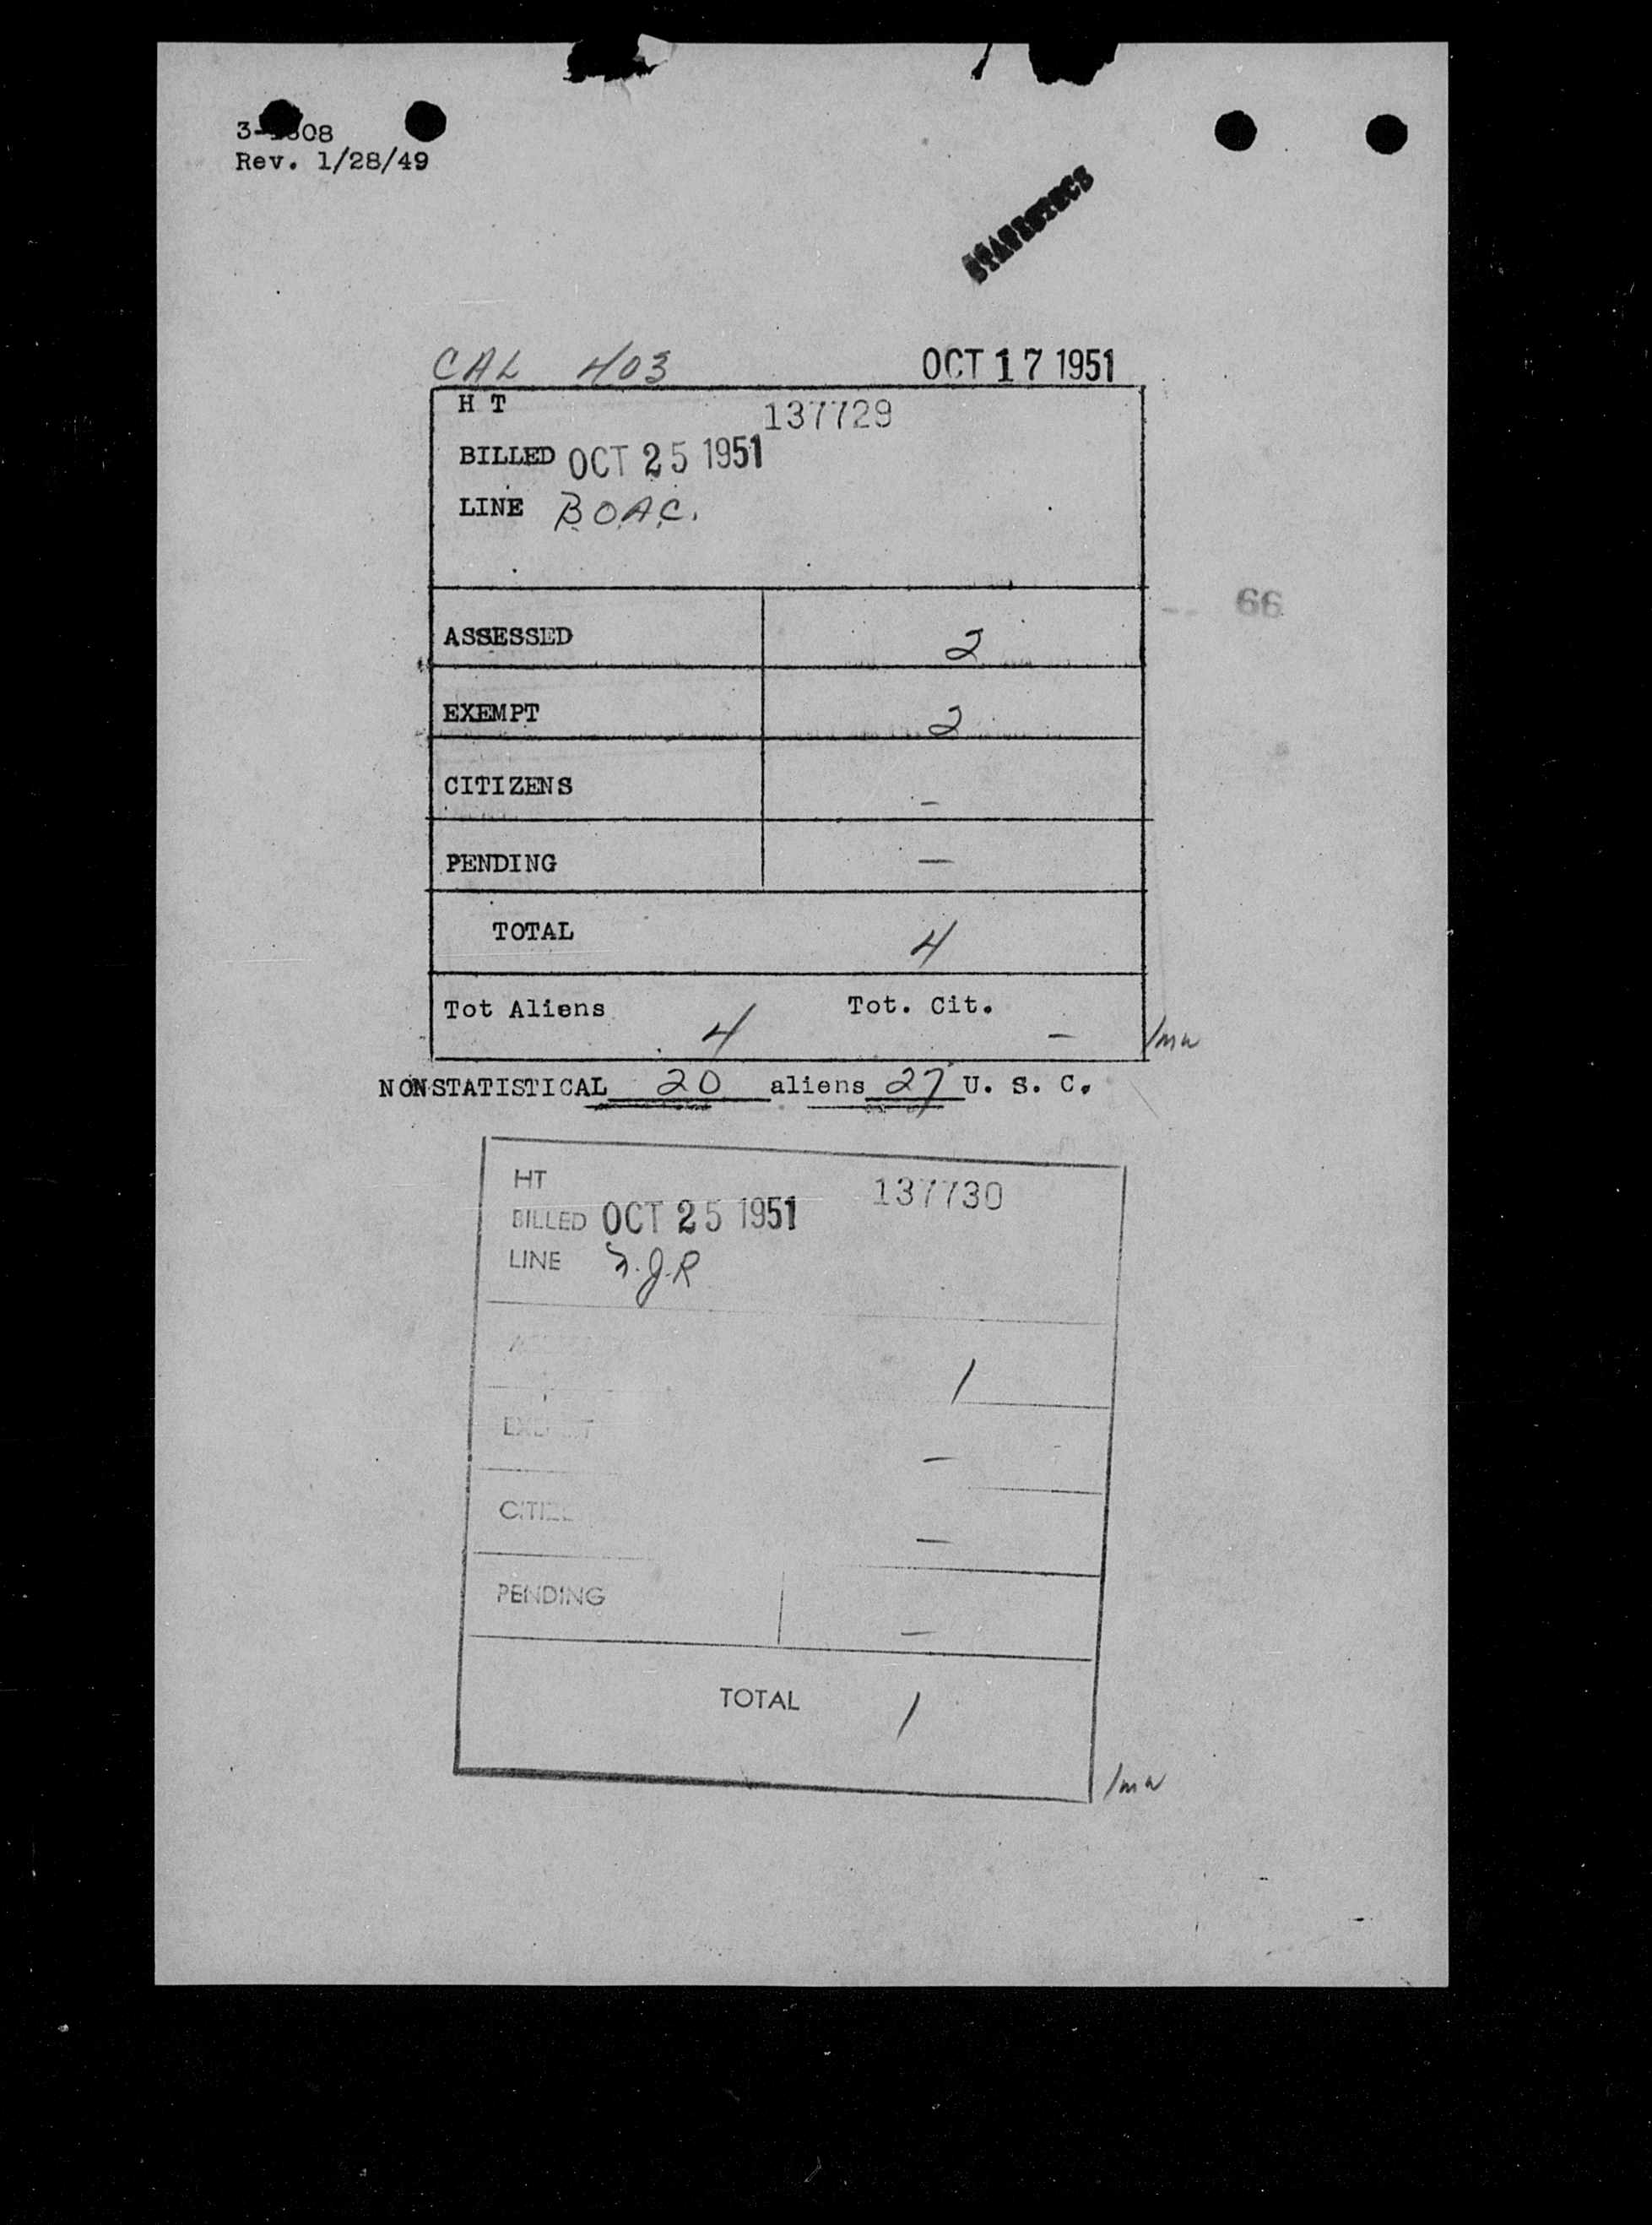 Rev. 1/28/49
STATISTICS
CAL 403 OCT 17 1951
H T 137729
BILLED OCT 25 1951
LINE B.O.A.C.
66
ASSESSED 2
EXEMPT 2
CITIZENS -
PENDING -
TOTAL 4
Tot Aliens 4 Tot. Cit. -
/mw
NONSTATISTICAL 20 aliens 27 U. S. C.
HT 137730
BILLED OCT 25 1951
LINE J.R
1
-
-
PENDING -
TOTAL 1
/mw